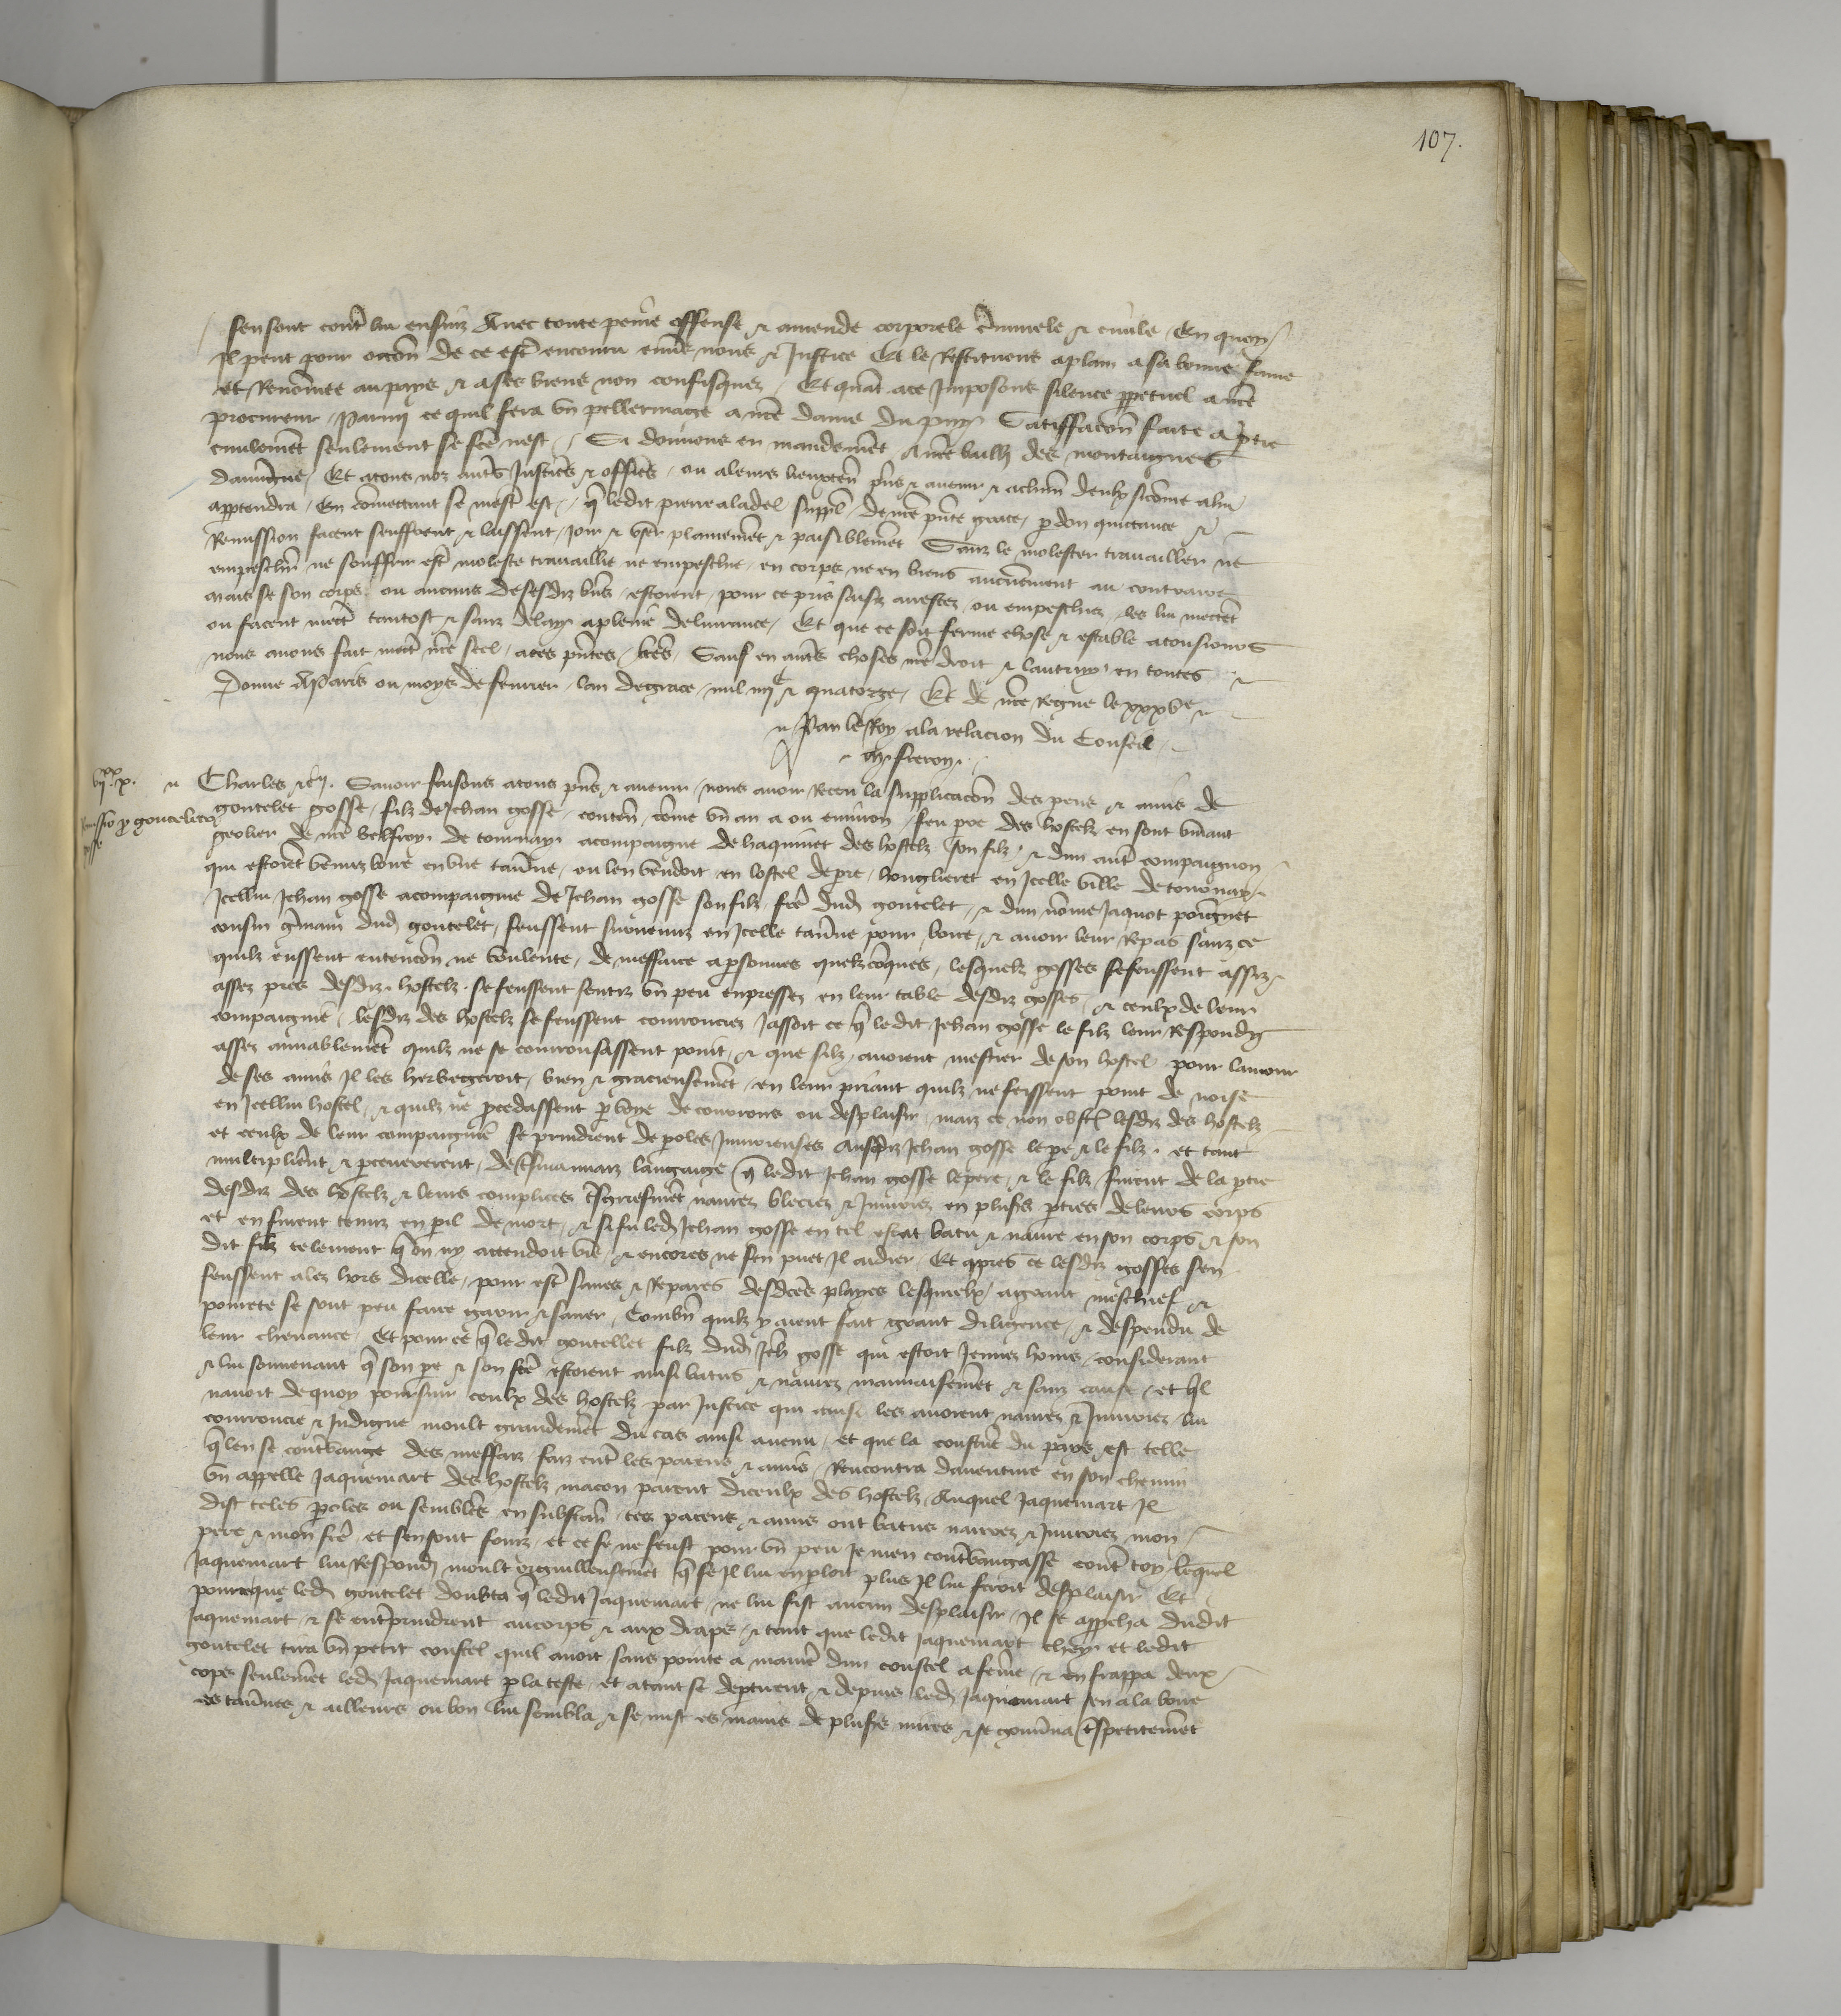 107.
sensent contre lui ensuiz Avec toute peine offense et amende corporele criminele et civile En quoy
Il peut pour occasion de ce estre encouru envers nous et Justice Et le Restituons aplain a sa bonne fame
et Renommee au pays et a ses biens non confisquez / Et quant ace Imposons silence perpetuel a nostre
procureur / Parmy ce quil fera un pellerinage a nostre dame du puy Satisfaction faite a partie
civilement seulement se fce nest / Si donnons en mandement A nostre bailli des montaignes
dauvergne / Et atous noz autres Justiciers et officiers / ou aleurs lieuxtenans presens et avenir et achascun deulx sicomme alui
appartendra / En commettant se mestier est / que ledit pierre aladel suppliant / de nostre presente grace / pardon quittance et
Remission facent seuffrent et laissent / Joir et user plainement et paisiblement Sanz le molester travaillier ne
empeschier ne souffrir estre moleste travaillie ne empeschie / en corps ne en biens aucunement au contraire
mais se son corps ou aucuns de sesdiz biens / estoient / pour ce pris saisiz arrestez / ou empeschiez / les lui mettent
ou facent mettre tantost et sanz delay aplaine delivrance / Et que ce soit ferme chose et estable atousiours
nous avons fait mettre nostre seel / aces presentes / lettres / Sauf en autres choses nostre droit et lautruy en toutes
Donne AParis ou moys de fevrier / lan de grace / mil iiijc et quatorze / Et de nostre Regne le xxxve
Par le Roy ala relacion du Conseil
freron
vijxx x.
Charles etc. Savoir faisons atous presens et avenir / nous avoir Receu la supplicacion des parens et amis de
Remissio pro gouteleto gosse
goutelet gosse / filz de Jehan gosse / contenant / comme un an a ou environ / feu pere des hostelz en sont vivant
geolier de nostre belfroy de tournay acompaigne de haquinet des hostelz son filz et dun autre compaignon
qui estoient venuz boire en une taverne / ou len vendoit en lostel de pere / honglieret en Jcelle ville de tournay
Jcellui Jehan gosse acompaigne de Jehan gosse son filz frere dudit goutelet / et dun nomme Jaquot poignet
cousin germain dudit goutelet / feussent survenuz en Jcelle taverne pour boire / et avoir leur Repas sanz ce
quilz eussent entencion ne voulente / de meffaire a personnes quelzconques / lesquelz gosses se feussent assiz
assez pres desdiz hostelz se feussent sentiz un peu enpressez en leur table desdiz gosses et ceulx de leur
compaignie / lesdiz des hostelz se feussent courrouciez Jassoit ce que ledit Jehan gosse le filz leur Respondy
assez amiablement quilz ne se courroussassent point / et que silz avoient mestier de son hostel pour lamour
de ses amis Il les herbegeroit / bien et gracieusement / en leur priant quilz ne feissent point de noise
en Jcellui hostel / et quilz ne procedassent par voye de courrous ou desplaisir / maiz ce non obstant lesdiz des hostelz
et ceulx de leur compaignie se prindrent de paroles Injurieuses Ausdiz Jehan gosse le pere et le filz et tant
multiplierent et perseverent / de mauvaiz langaige que ledit Jehan gosse le pere / et le filz furent de la partie
desdiz des hostelz et leurs complices tresgriefment navrez bleciez et Injuriez en plusieurs parties de leurs corps
et en furent tenuz en peril de mort / et si fu ledit Jehan gosse en tel estat batu et navre en son corps et son
dit filz telement que on ny attendoit vie et encores ne sen puet Il aidier Et apres ce lesdiz gosses sen
feussent alez hors dicelle / pour estre sanez et Repares desdictes playes lesquelx / agrant meschief et
povrete se sont peu faire garir et saner / Combien quilz y aient fait grant diligence / et despendu de
leur chevance / Et pour ce que ledit goutellet filz dudit Jehan gosse qui estoit Jeunes homs / considerant
et lui souvenant que son pere et son frere estoient ainsi batus et navrez mauvaisement et sanz cause / et quil
navoit dequoy poursuir ceulx des hostelz par Justice qui ainsi les avoient navrez et Injuriez lui
courroucie et Indigne moult grandement du cas ainsi avenu / et que la coustume du pays est telle
que len se contrevange des meffaiz faiz entre les parens et amis / Rencontra daventure en son chemin
un appelle Jaquemart des hostelz macon parent diceulx des hostelz / Auquel Jaquemart Il
dist teles paroles ou semblables en substance / tes parens et amis ont batus navrez et Injuriez mon
pere et mon frere et sen sont fouiz / et ce se ne feust pour un peu Je men contrevangasse contre toy / lequel
Jaquemart lui Respondy moult orguilleusement que se Il lui en parloit plus Il lui feroit desplaisir Et
pourceque ledit goutelet doubta que ledit Jaquemart ne lui fist aucun desplaisir / Il se approcha dudit
Jaquemart et se entreprindrent au corps et aux draps / et tant que ledit Jaquemart chey et ledit
goutelet tira un petit coustel quil avoit sans pointe a maniere dun coustel a femme / et en frappa deux
cops seulement ledit Jaquemart par la teste / et atant se departirent et depuis ledit Jaquemart sen ala boire
es tavernes et ailleurs ou bon lui sembla et se mist es mains de plusieurs mires et se gouverna trespetitement